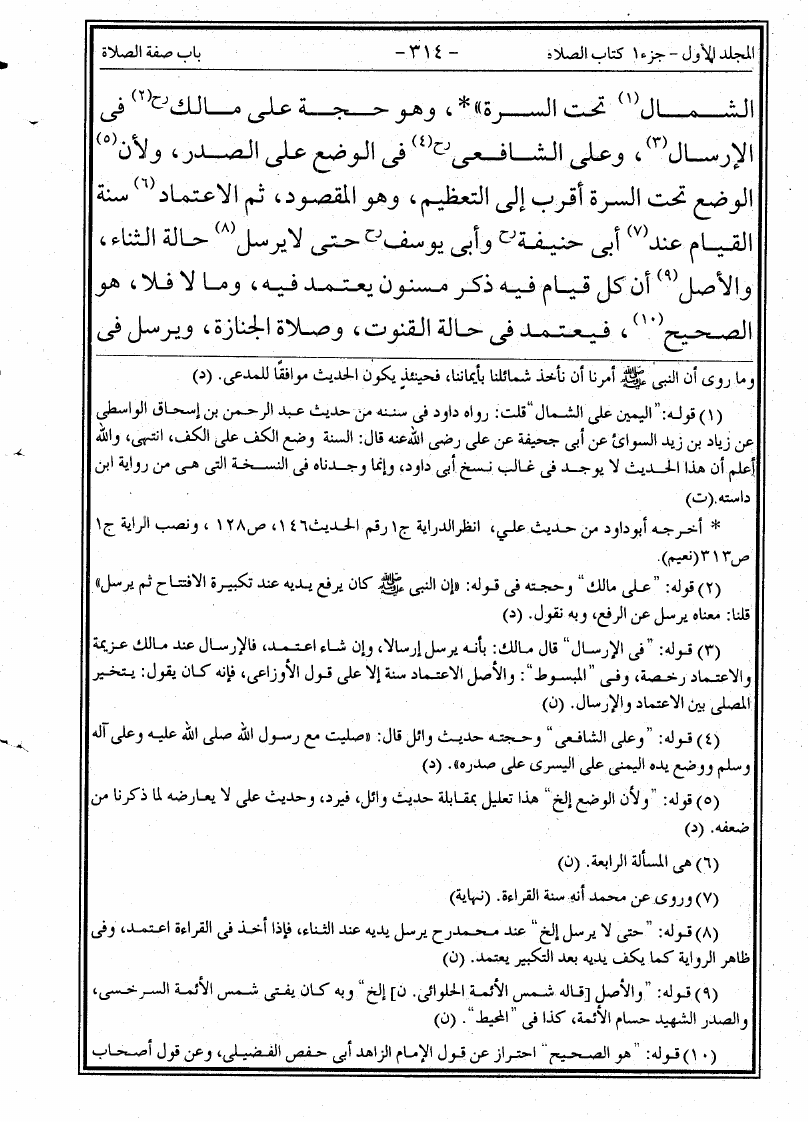 المجلد الأول - جزء١ كتاب الصلاه - ٣١٤ - باب صفة الصلاة
الشمال(١) تحت السرة»*، وهو حجة على مالكرح(٢) فى
الإرسال(٣)، وعلى الشافعىرح(٤) فى الوضع على الصدر، ولأن(٥)
الوضع تحت السرة أقرب إلى التعظيم، وهو المقصود، ثم الاعتماد(٦) سنة
القيام عند(٧) أبى حنيفةرح وأبى يوسفرح حتى لايرسل(٨) حالة الثناء،
والأصل(٩) أن كل قيام فيه ذكر مسنون يعتمد فيه، وما لا فلا، هو
الصحيح(١٠)، فيعتمد فى حالة القنوت، وصلاة الجنازة، ويرسل فى
وما روى أن النبى ﷺ أمرنا أن نأخذ شمائلنا بأيماننا، فحينئذٍ يكون الحديث موافقًا للمدعى. (د)
(١) قوله: "اليمين على الشمال" قلت: رواه داود فى سننه من حديث عبد الرحمن بن إسحاق الواسطى
عن زياد بن زيد السوائ عن أبى جحيفة عن على رضى الله عنه قال: السنة وضع الكف على الكف، انتهى، والله
أعلم أن هذا الحديث لا يوجد فى غالب نسخ أبى داود، وإنما وجدناه فى النسخة التى هى من رواية ابن
داسته. (ت)
* أخرجه أبوداود من حديث علي، انظرالدراية ج١ رقم الحديث١٤٦، ص١٢٨، ونصب الراية ج١
ص٣١٣(نعيم).
(٢) قوله: "على مالك" وحجته فى قوله: «إن النبى ﷺ كان يرفع يديه عند تكبيرة الافتتاح ثم يرسل»
قلنا: معناه يرسل عن الرفع، وبه نقول. (د)
(٣) قوله: "فى الإرسال" قال مالك: بأنه يرسل إرسالا، وإن شاء اعتمد، فالإرسال عند مالك عزيمة
والاعتماد رخصة، وفى "المبسوط": والأصل الاعتماد سنة إلا على قول الأوزاعى، فإنه كان يقول: يتخير
المصلى بين الاعتماد والإرسال. (ن)
(٤) قوله: "وعلى الشافعى" وحجته حديث وائل قال: «صليت مع رسول الله صلى الله عليه وعلى آله
وسلم ووضع يده اليمنى على اليسرى على صدره». (د)
(٥) قوله: "ولأن الوضع إلخ" هذا تعليل بمقابلة حديث وائل، فيرد، وحديث على لا يعارضه لما ذكرنا من
ضعفه. (د)
(٦) هى المسألة الرابعة. (ن)
(٧) وروى عن محمد أنه سنة القراءة. (نهاية)
(٨) قوله: "حتى لا يرسل إلخ" عند محمدرح يرسل يديه عند الثناء، فإذا أخذ فى القراءة اعتمد، وفى
ظاهر الرواية كما يكف يديه بعد التكبير يعتمد. (ن)
(٩) قوله: "والأصل [قاله شمس الأئمة الحلوائى. ن] إلخ" وبه كان يفتى شمس الأئمة السرخسى،
والصدر الشهيد حسام الأئمة، كذا فى "المحيط". (ن)
(١٠) قوله: "هو الصحيح" احتراز عن قول الإمام الزاهد أبى حفص الفضيلى، وعن قول أصحاب